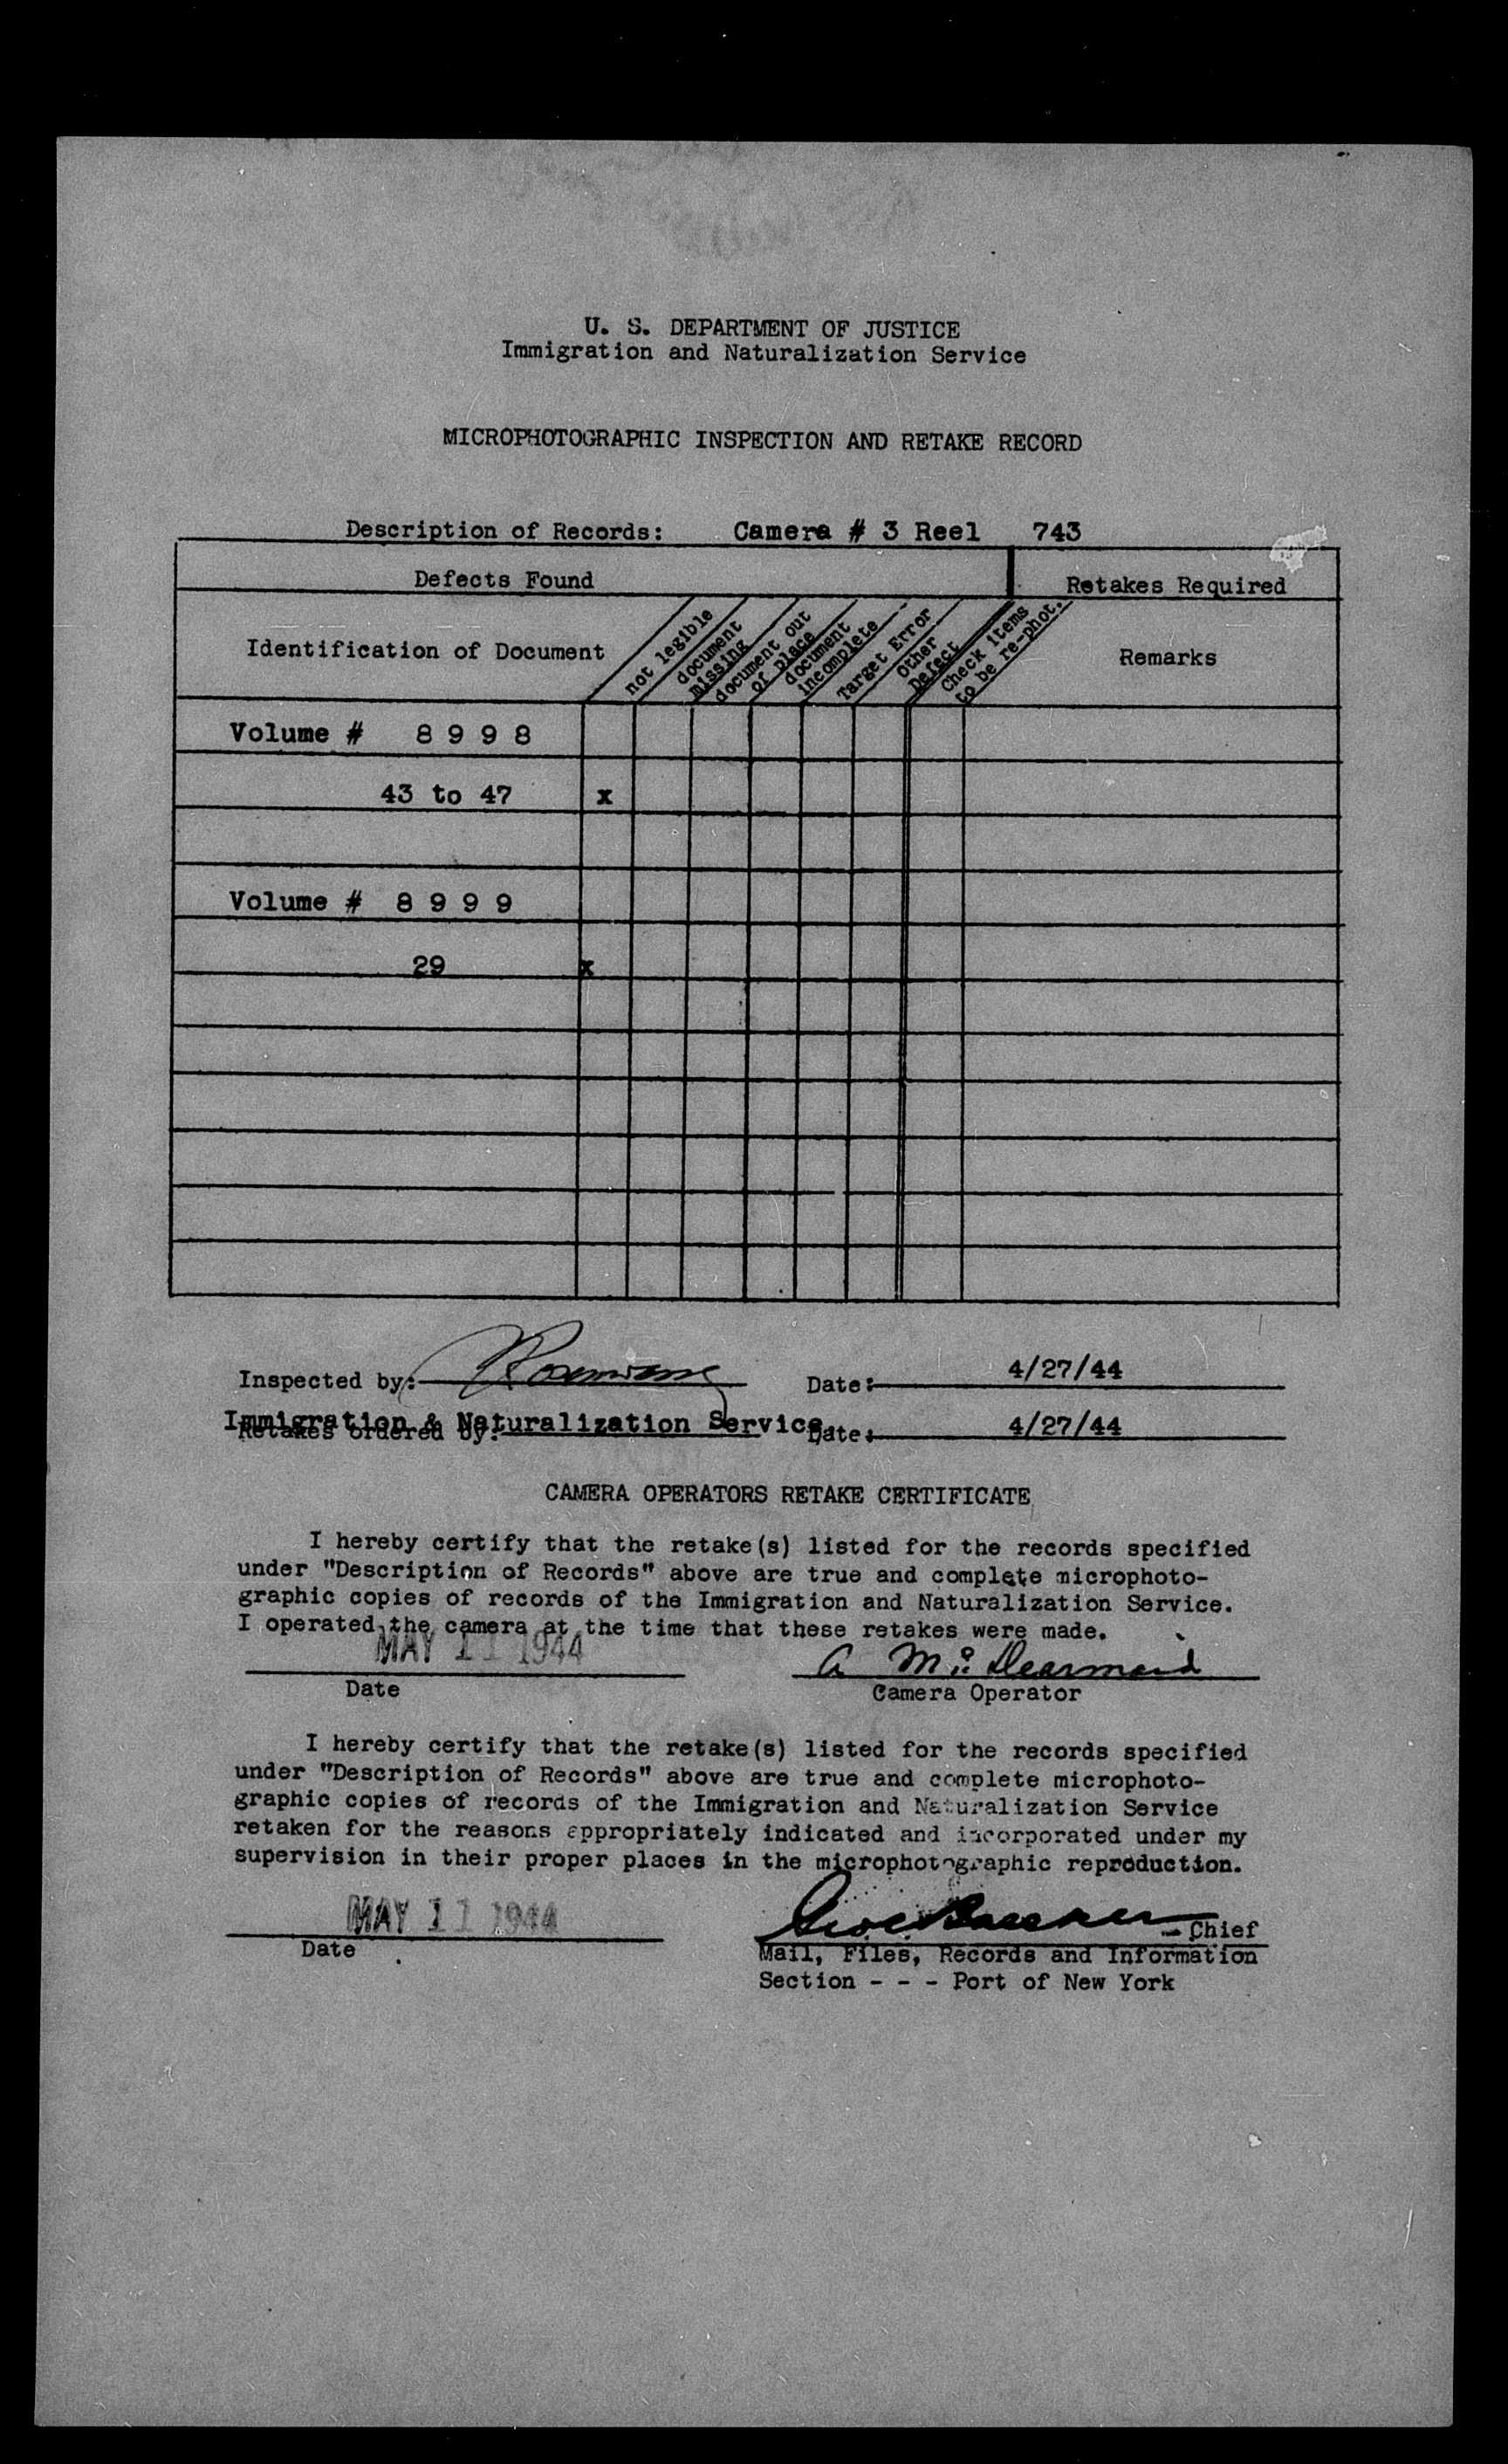 U. S. DEPARTMENT OF JUSTICE
Immigration and Naturalization Service
MICROPHOTOGRAPHIC INSPECTION AND RETAKE RECORD
Description of Records: Camera # 3 Reel 743
Defects Found
Retakes Required
Identification of Document
not legible
document missing
document out of place
document incomplete
Target Error
Other Defect
Check items to be re-phot.
Remarks
Volume # 8 9 9 8
43 to 47 x
Volume # 8 9 9 9
29 x
Inspected by: Date: 4/27/44
Immigration & Naturalization Service
Retakes ordered by: Date: 4/27/44
CAMERA OPERATORS RETAKE CERTIFICATE
I hereby certify that the retake(s) listed for the records specified
under "Description of Records" above are true and complete microphoto-
graphic copies of records of the Immigration and Naturalization Service.
I operated the camera at the time that these retakes were made.
MAY 11 1944
A Mc Dearmaid
Date
Camera Operator
I hereby certify that the retake(s) listed for the records specified
under "Description of Records" above are true and complete microphoto-
graphic copies of records of the Immigration and Naturalization Service
retaken for the reasons appropriately indicated and incorporated under my
supervision in their proper places in the microphotographic reproduction.
MAY 11 1944
- Chief
Date
Mail, Files, Records and Information
Section - - - Port of New York